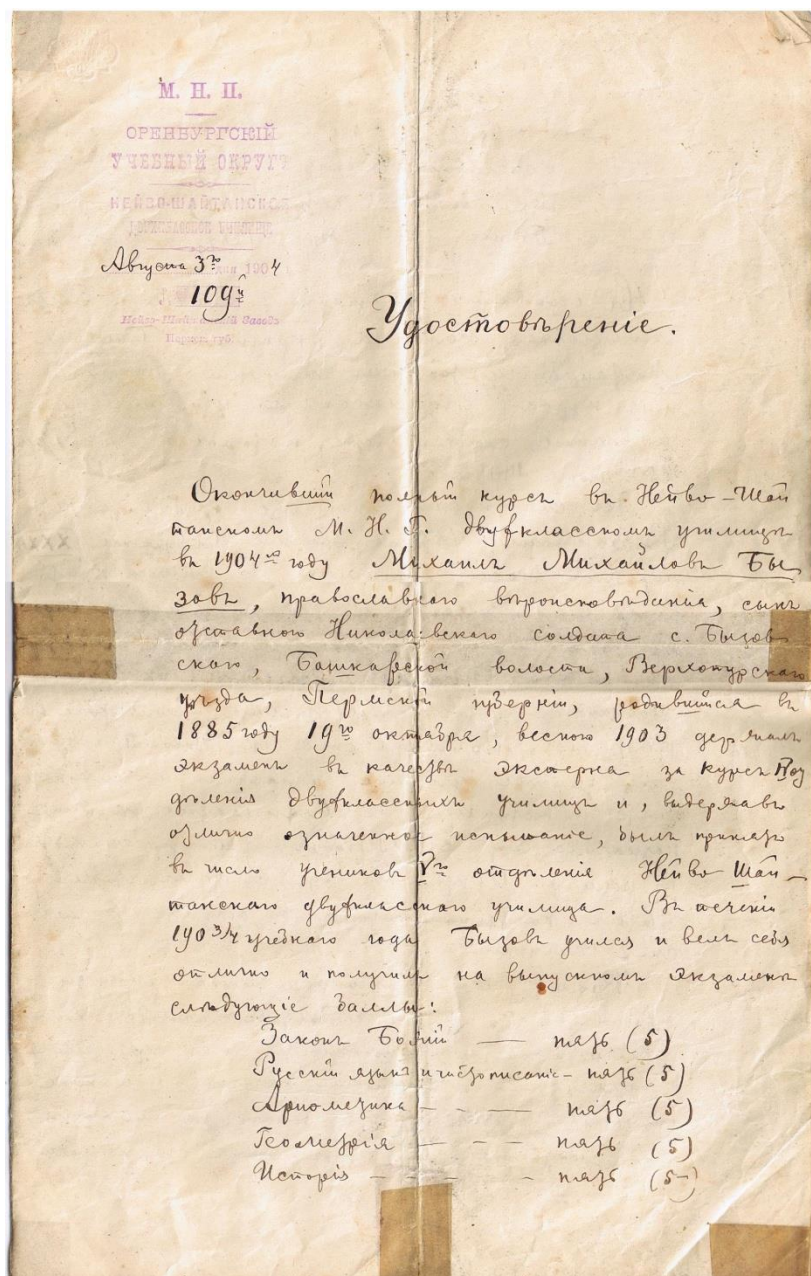 М. Н. П.
ОРЕНБУРГСКІЙ
УЧЕБНЫЙ ОКРУГЪ
НЕЙВО-ШАЙТАНСКОЕ
ДВУХКЛАССНОЕ УЧИЛИЩЕ
Августа 3го 1904
109
Нейво-Шайтанскій Заводъ
Пермск. губ.
Удостовѣреніе.
Окончившій полный курсъ въ Нейво-Шай
танскомъ М. Н. П. двухклассномъ училищѣ
въ 1904го году Михаилъ Михайловъ Бы
зовъ, православнаго вѣроисповѣданія, сынъ
отставного Николаевскаго солдата с. Бызов
скаго, Башкарской волости, Верхотурскаго
уѣзда, Пермской губерніи, родившійся въ
1885 году 19го октября, весною 1903 держалъ
экзаменъ въ качествѣ экстерна за курсъ от
дѣленія двухклассныхъ училищъ и, выдержавъ
отлично означенное испытаніе, былъ принятъ
въ число учениковъ Vго отдѣленія Нейво Шай-
танскаго двухкласснаго училища. Въ теченіи
1903/4 учебнаго года Бызовъ учился и велъ себя
отлично и получилъ на выпускномъ экзаменѣ
слѣдующіе баллы:
Законъ Божій — пять (5)
Русскій языкъ и чистописаніе - пять (5)
Ариѳметика - - — пять (5)
Геометрія — - - пять (5)
Исторія — - - пять (5)